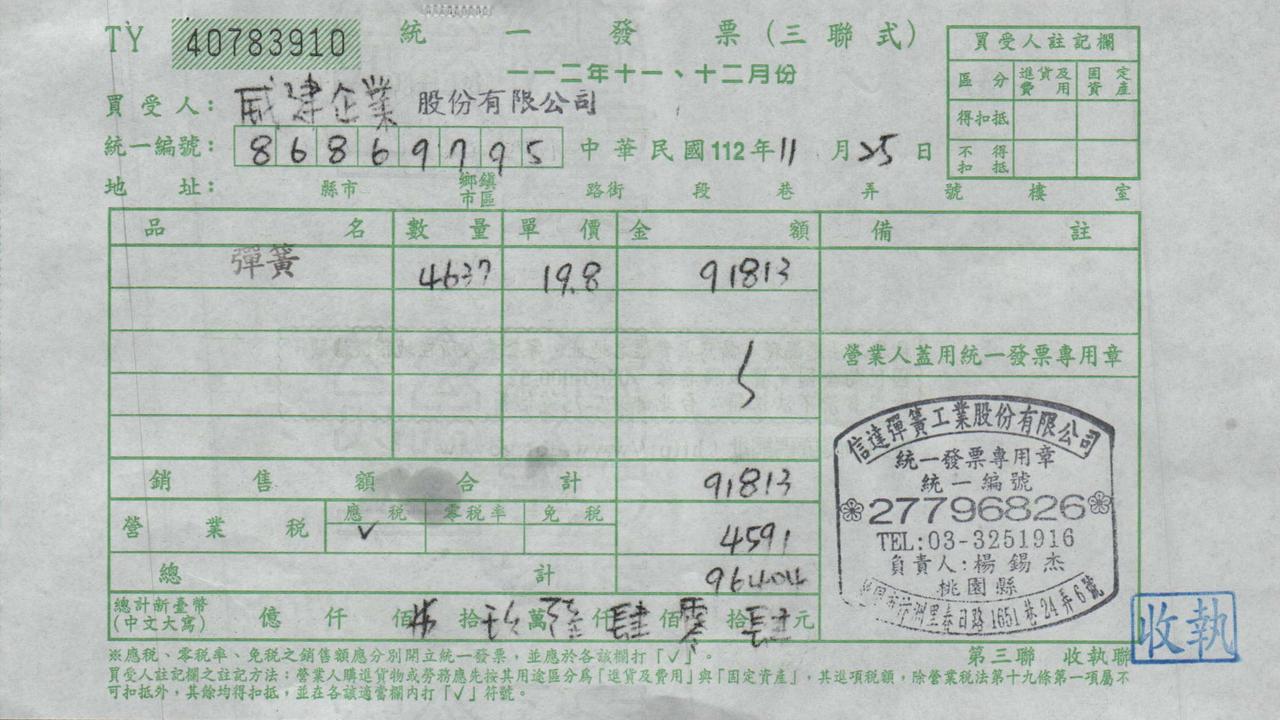 TY 40783910 統一發票(三聯式)
一一二年十一、十二月份
買受人: 威津企業 股份有限公司
統一編號: 86869795 中華民國112年11月25日
地址: 縣市 鄉鎮市區 路街 段 巷 弄 號 樓 室
買受人註記欄
區分 進貨及費用 固定資產
得扣抵
不得扣抵
品名 數量 單價 金額 備註
彈簧 4637 19.8 91813
營業人蓋用統一發票專用章
銷售額合計 91813
營業稅 應稅 零稅率 免稅 4591
✓
總計 96404
總計新臺幣(中文大寫) 億 仟 佰 拾 萬 仟 肆 佰 零 拾 元
信達彈簧工業股份有限公司
統一發票專用章
統一編號
27796826
TEL:03-3251916
負責人:楊錫杰
桃園縣
里春日路1651巷24弄6號
※應稅、零稅率、免稅之銷售額應分別開立統一發票,並應於各該欄打「✓」。
第三聯 收執聯
收執
買受人註記欄之註記方法:營業人購進貨物或勞務應先按其用途區分為「進貨及費用」與「固定資產」,其進項稅額,除營業稅法第十九條第一項屬不
可扣抵外,其餘均得扣抵,並在各該適當欄內打「✓」符號。